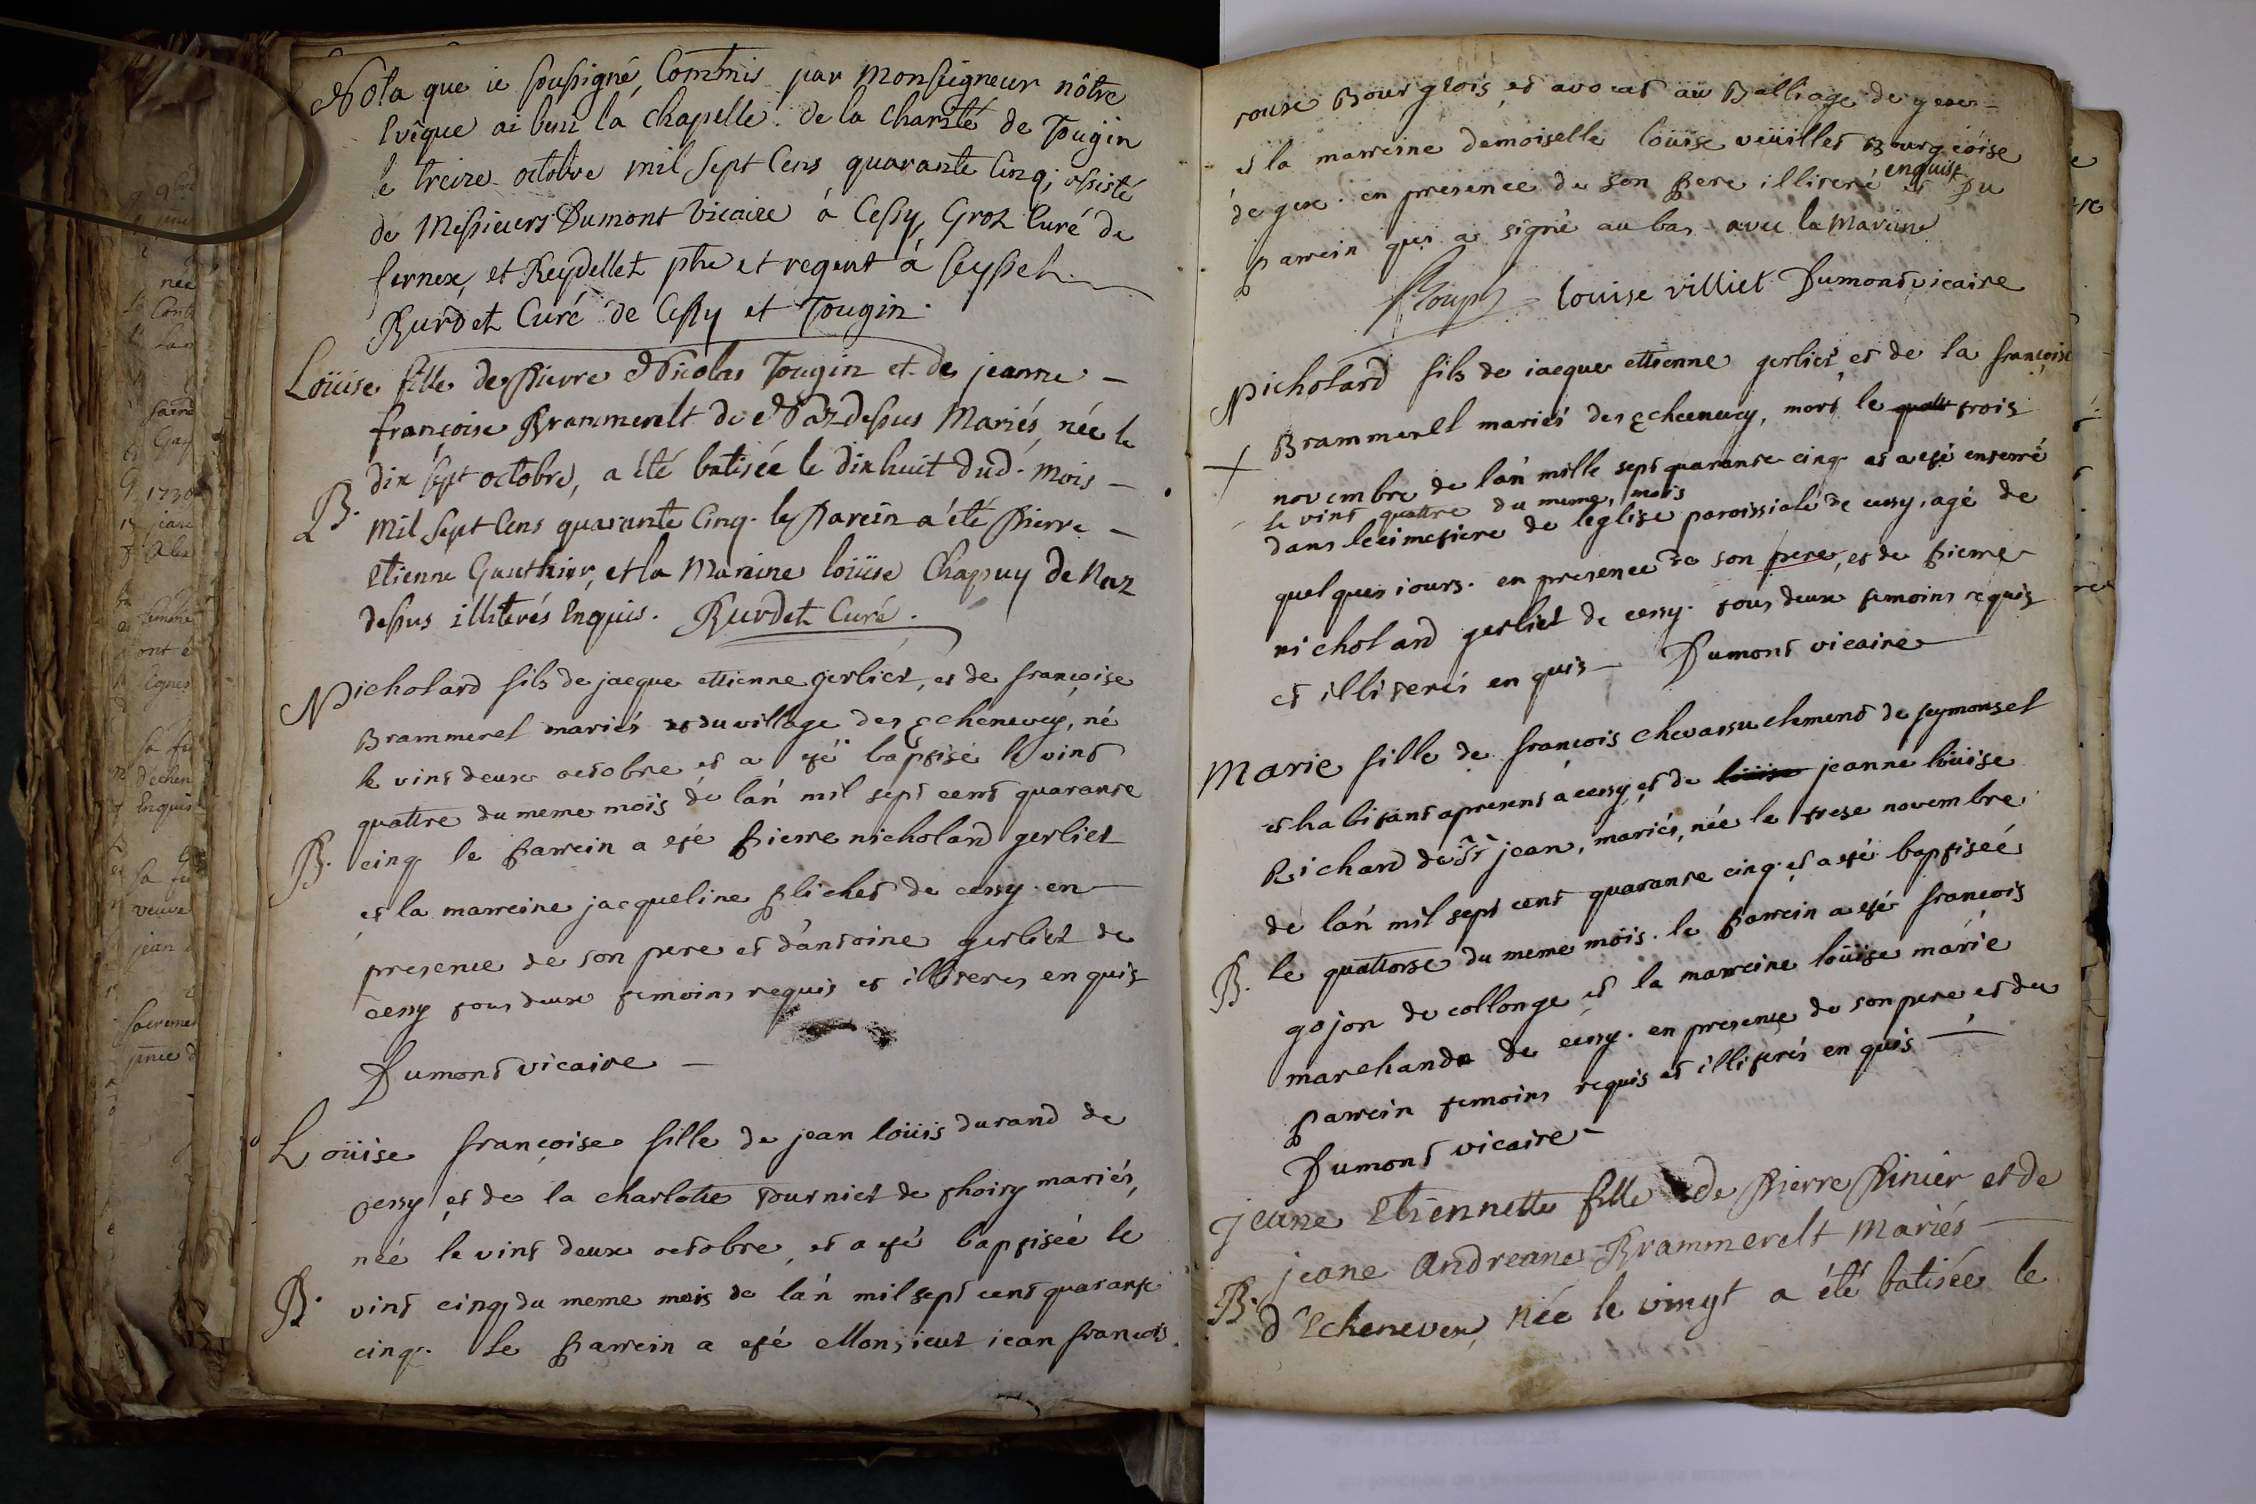 Nota que ie soussigné, Commis par Monseigneur nôtre
Evêque ai beni la chapelle de la Charité de Tougin
le treize octobre mil sept Cens quarante Cinq, assisté
de Messieurs Dumont Vicaire à Cessy, Groz Curé de
fernex, et Reydellet ptre et regent à seyssel.
Burdet Curé de Cessy et Tougin.
Loüise fille de Pierre Nicolas Tougin et de jeanne
françoise Brammerelt de Naz dessus Mariés, née le
dix sept octobre, a été batisée le dix huit dud. mois
B. Mil sept Cens quarante Cinq. le Parein a été Pierre
Etienne Gauthier, et la Mareine loüise Chapuy de Naz
dessus illiterés Enquis. Burdet Curé.
Nicholard fils de jacque ettienne gerliet, et de françoise
Brammerel mariés et du village des Echenevey, né
le vint deux octobre et a eté baptisé le vint
quattre du meme mois de lán mil sept cent quarante
B. cinq le parrein a eté pierre nicholard gerliet
et la marreine jacqueline plichet de cessy. en
presence de son pere et d'antoine gerliet de
cessy tous deux temoins requis et illiteres en quis
Dumont vicaire
Loüise françoise fille de jean loüis durand de
cessy et de la charlotte tourniet de thoiry mariés,
née le vint deux octobre, et a eté baptisée le
B. vint cinq du meme mois de lán mil sept cent quarante
cinq. le parrein a eté Monsieur jean françois
roux Bourgeois et avocat au Balliage de gex
et la marreine demoiselle loüise veüillet Bourgeoise
de gex. en presence de son pere illiteré enquist et du
parrein qui a signé au bas avec la Mareine
louise villiet Dumont vicaire
Nicholard fils de iacque ettienne gerliet et de la françoise
Brammerel mariés des Echenevey, mort le trois
novembre de lán mille sept quarante cinq et a eté enterré
le vint quattre du meme mois
dans le cimetiere de leglise paroissiale de cessy, agé de
quelques iours. en presence de son pere, et de pierre
nicholard gerliet de cessy. tous deux temoins requis
et illiterés en quis Dumont vicaire
Marie fille de françois chevassu clement de
et habitant apresent a cessy et de jeanne loüise
Richard de St jean, mariés, née le trese novembre
de lán mil sept cent quarante cinq et a eté baptisée
B. le quattorse du meme mois. le parrein a eté françois
gojon de collonge et la marreine loüise marie
marchande de cessy. en presence de son pere et du
parrein temoins requis et illiterés en quis
Dumont vicaire
jeane Etiennette fille de Pierre Pinier et de
jeane Andreanne Brammerelt Mariés
B. d'Echenevex, Née le vingt a été batisée le